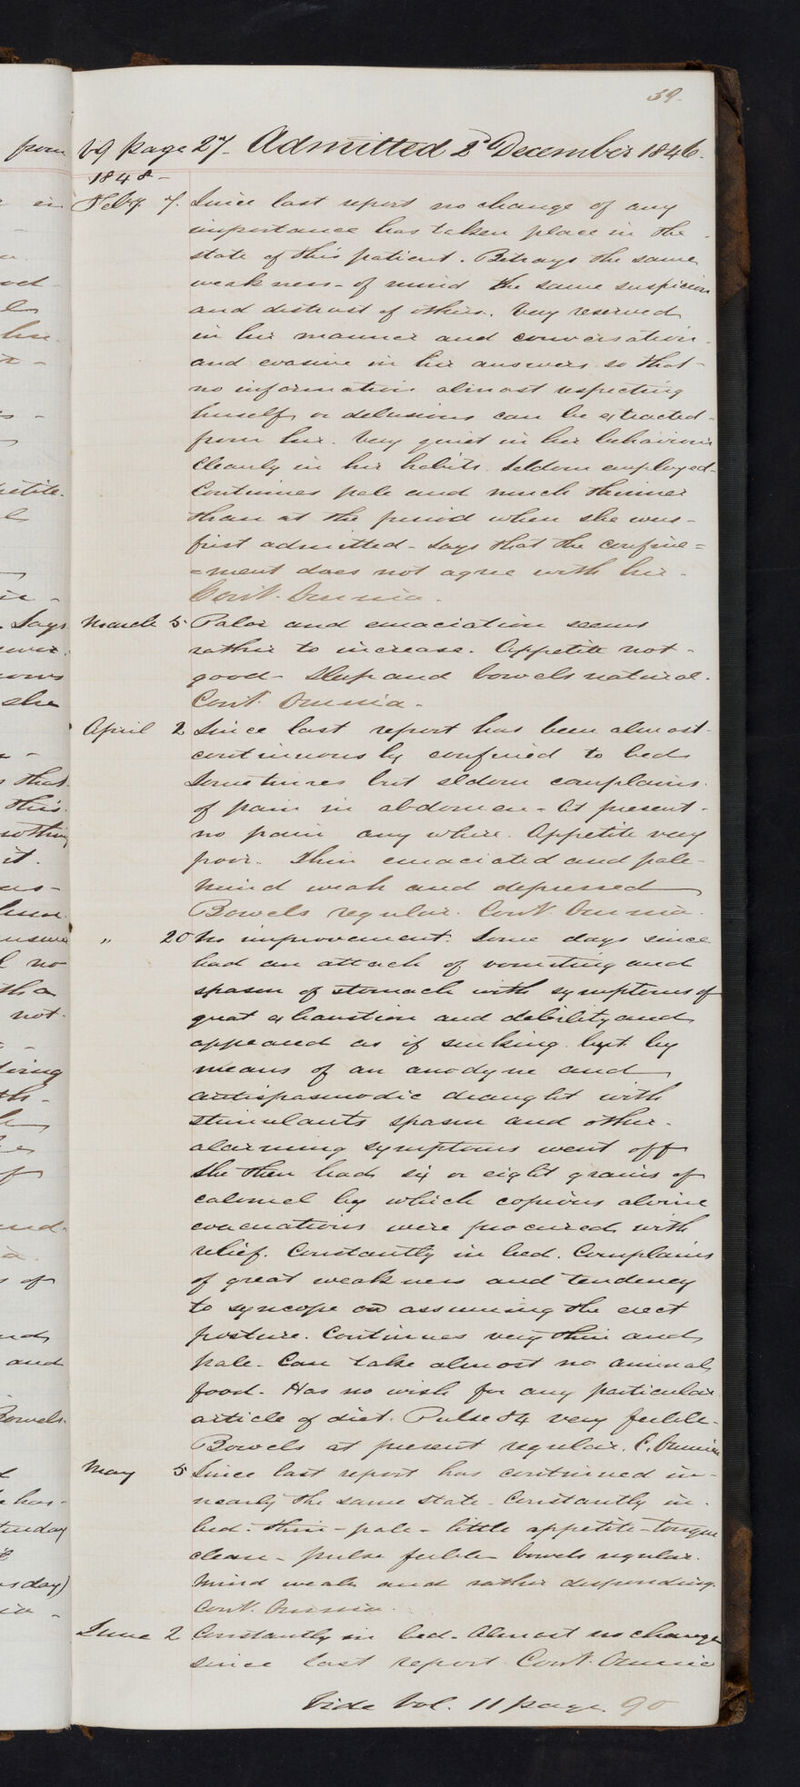 39.
from V9 page 27. Admitted 2d December 1846.
1848-
Feby 7. Since last report no change of any
importance has taken place in the
state of this patient. Betrays the same
weakness of mind the same suspicion
and distrust of others. Very reserved
in her manner and conversation.
and evasive in her answers so that
no information almost respecting
herself or delusions can be extracted
from her. Very quiet in her behaviour
Cleanly in her habits. Seldom employed
Continues pale and much thinner
than at the period when she was
first admitted - Says that the confine=
=ment does not agree with her.
Cont. Omnia.
March 5 Palor and emaciation seems
rather to increase. Appetite not
good - Sleep and bowels natural.
Cont. Omnia.
April 2 Since last report has been almost
continuously confined to bed
Sometimes but seldom complains
of pain in abdomen - At present
no pain any where. Appetite very
poor. Thin emaciated and pale
Mind weak and depressed
Bowels regular. Cont Omnia.
" 20 No improvement. Some days since
had an attack of vomiting and
spasm of stomach with symptoms of
great exhaustion and debility and
appeared as if sinking but by
means of an anodyne and
antispasmodic draught with
stimulants spasm and other
alarming symptoms went off
She then had six or eight grains of
calomel by which copious alvine
evacuations were procured with
relief. Constantly in bed. Complains
of great weakness and tendency
to syncope on assuming the erect
posture. Continues very thin and
pale. Can take almost no animal
food. Has no wish for any particular
article of diet. Pulse 84 very feeble
Bowels at present regular. C. Omnia
May 5 Since last report has continued in
nearly the same state. Constantly in
bed. thin - pale - little appetite - tongue
clean - pulse feeble bowels regular.
Mind weak and rather desponding.
Cont. Omnia.
June 2 Constantly in bed. Almost no change
since last report Cont. Omnia
Vide Vol. 11 page 90